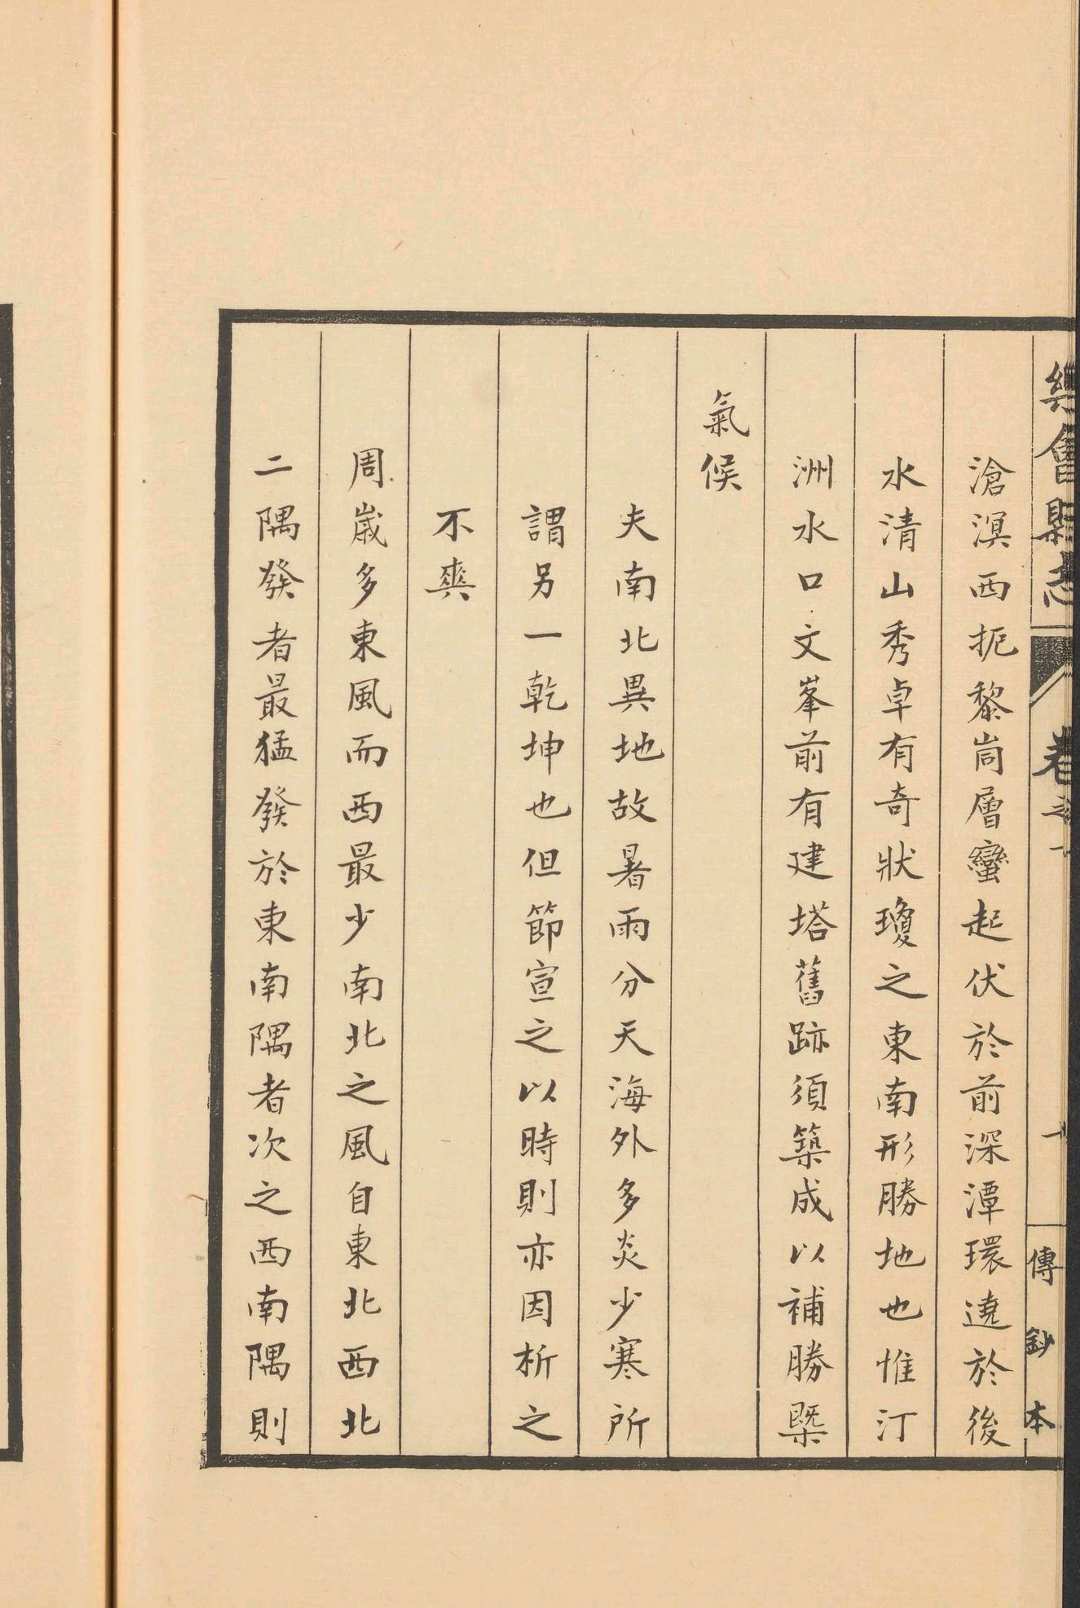 會縣志
卷之
一
傳鈔本
滄溟西扼黎崗層巒起伏於前深潭環遶於後
水清山秀卓有奇狀瓊之東南形勝地也惟汀
洲水口文峯前有建塔舊跡須築成以補勝槩
氣候
夫南北異地故暑雨分天海外多炎少寒所
謂另一乾坤也但節宣之以時則亦因析之
不爽
周歲多東風而西最少南北之風自東北西北
二隅發者最猛發於東南隅者次之西南隅則